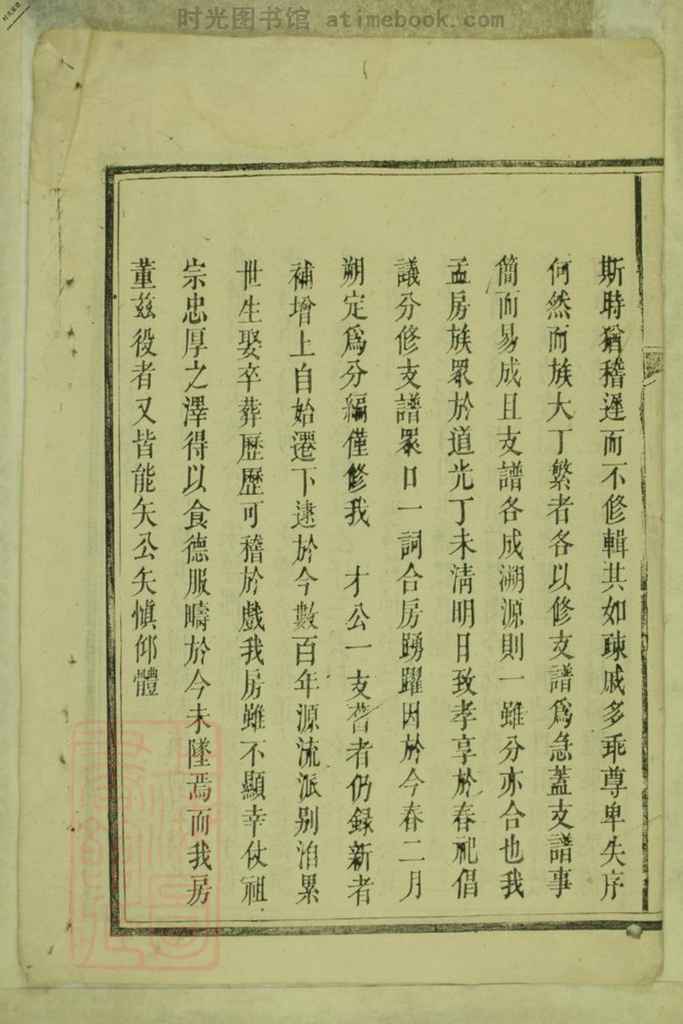 时光图书馆 atimebook.com
斯時猶稽遲而不修輯其如踈戚多乖尊卑失序
何然而族大丁繁者各以修支譜爲急蓋支譜事
簡而易成且支譜各成溯源則一雖分亦合也我
孟房族眾於道光丁未清明日致孝享於春祀倡
議分修支譜眾口一詞合房踴躍因於今春二月
朔定爲分編僅修我 才公一支舊者仍録新者
補增上自始遷下逮於今數百年源流派别洎累
世生娶卒葬歷歷可稽於戲我房雖不顯幸仗祖
宗忠厚之澤得以食德服疇於今未墜焉而我房
董兹役者又皆能矢公矢愼仰體